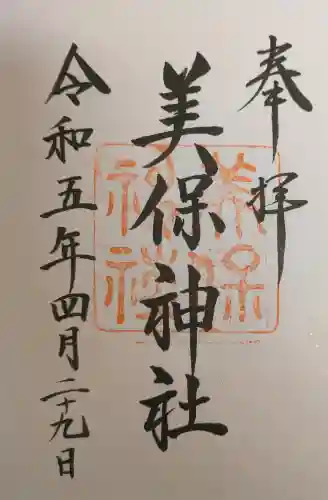 奉拝
美保神社
美保
神社
令和五年四月二十九日